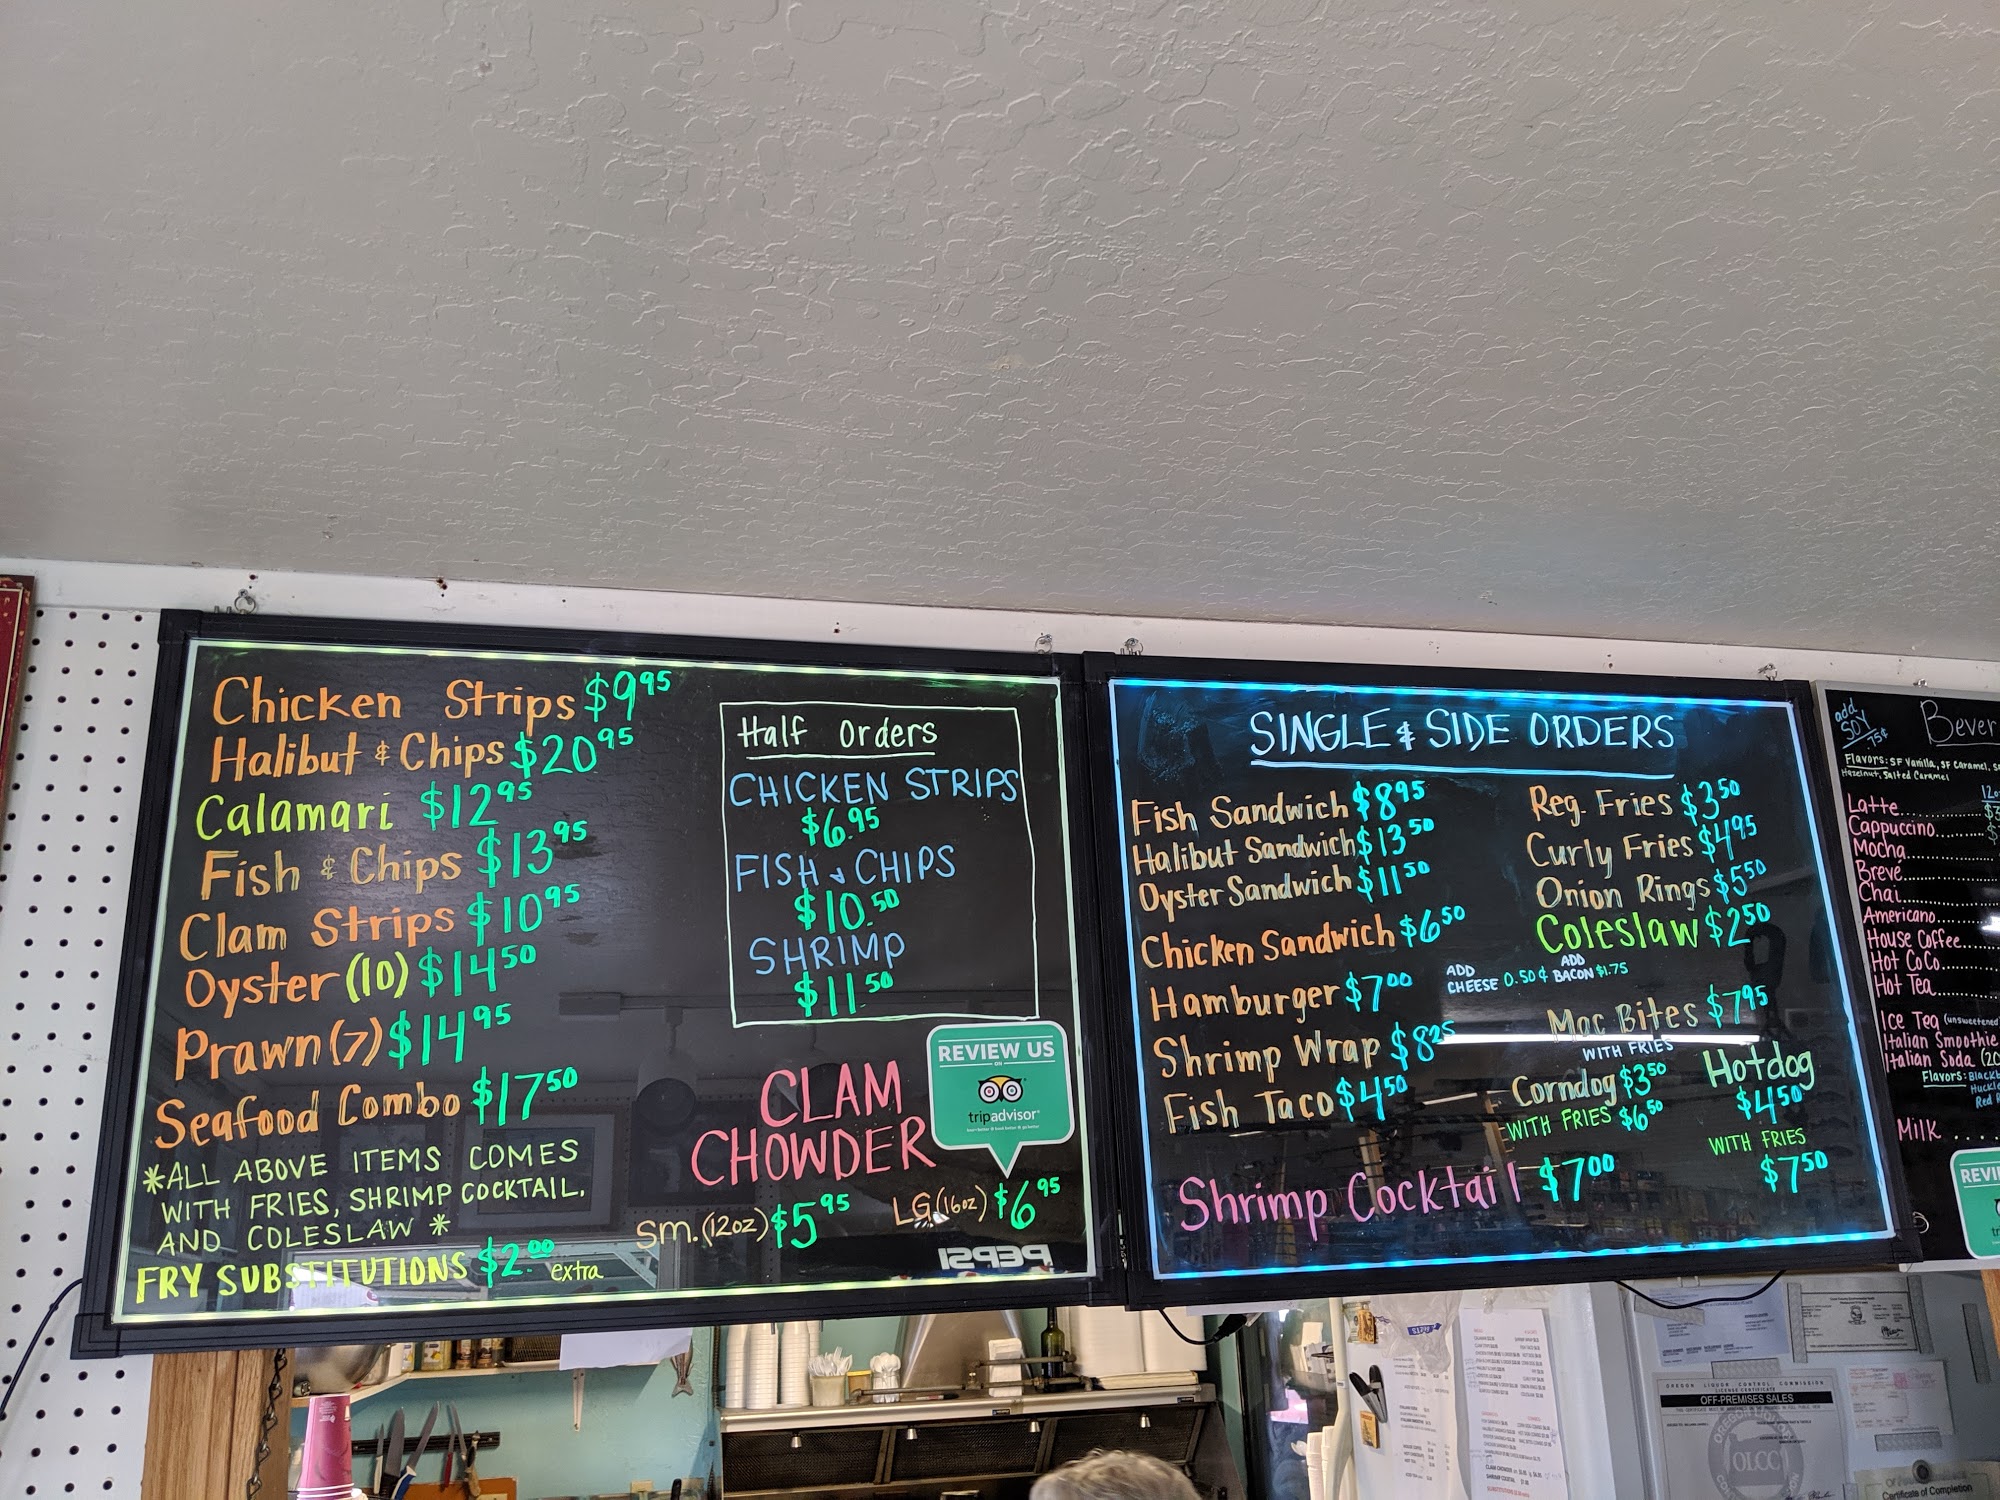 Chicken Strips $9.95
Halibut & Chips $20.95
Calamari $12.95
Fish & Chips $13.95
Clam Strips $10.95
Oyster (10) $14.50
Prawn (7) $14.95
Seafood Combo $17.50
*ALL ABOVE ITEMS COMES
WITH FRIES, SHRIMP COCKTAIL,
AND COLESLAW *
FRY SUBSTITUTIONS $2.00 extra
Half Orders
CHICKEN STRIPS
$6.95
FISH & CHIPS
$10.50
SHRIMP
$11.50
CLAM
CHOWDER
SM. (12oz) $5.95
LG (16oz) $6.95
REVIEW US
ON
tripadvisor
PEPSI
SINGLE & SIDE ORDERS
Fish Sandwich $8.95
Halibut Sandwich $13.50
Oyster Sandwich $11.50
Chicken Sandwich $6.50
Hamburger $7.00
ADD CHEESE 0.50¢
ADD BACON $1.75
Shrimp Wrap $8.25
Fish Taco $4.50
Reg. Fries $3.50
Curly Fries $4.95
Onion Rings $5.50
Coleslaw $2.50
Mac Bites $7.95
WITH FRIES
Corndog $3.50
WITH FRIES $6.50
Hotdog
$4.50
WITH FRIES
$7.50
Shrimp Cocktail $7.00
add
SOY
.75¢
Bever
Flavors: SF Vanilla, SF Caramel,
Hazelnut, Salted Caramel
Latte
Cappuccino
Mocha
Breve
Chai
Americano
House Coffee
Hot CoCo
Hot Tea
Ice Tea (unsweetened)
Italian Smoothie
Italian Soda
Flavors:
Milk
REVI
OREGON LIQUOR CONTROL COMMISSION
LICENSE CERTIFICATE
OFF-PREMISES SALES
OLCC
Certificate of Completion